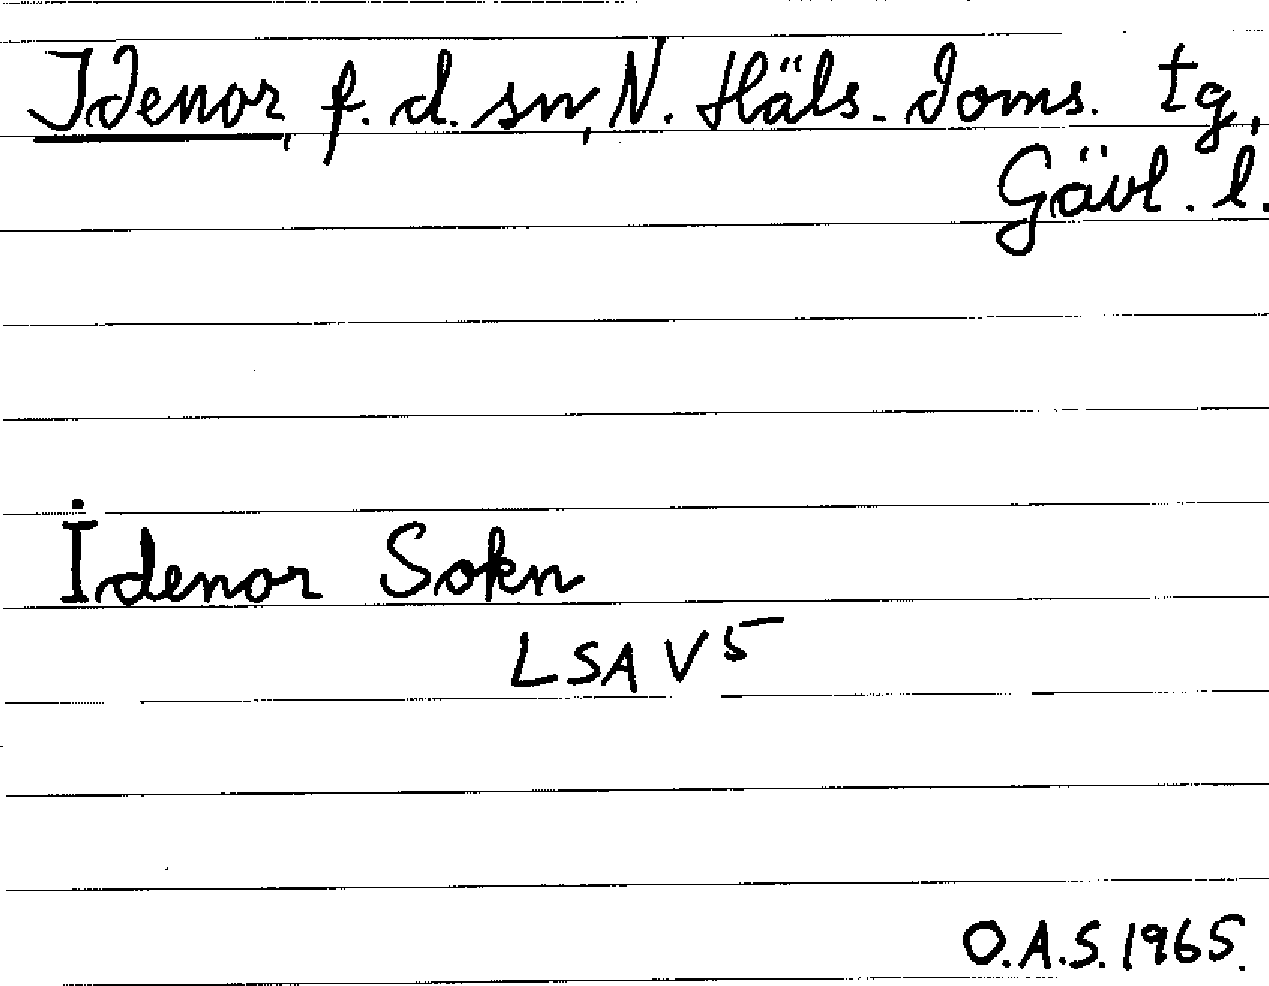 Idenor, f. d. sn, N. Häls. doms. tg,
Gävl. l.
Idenor Sokn
LSA V5
O.A.S. 1965.